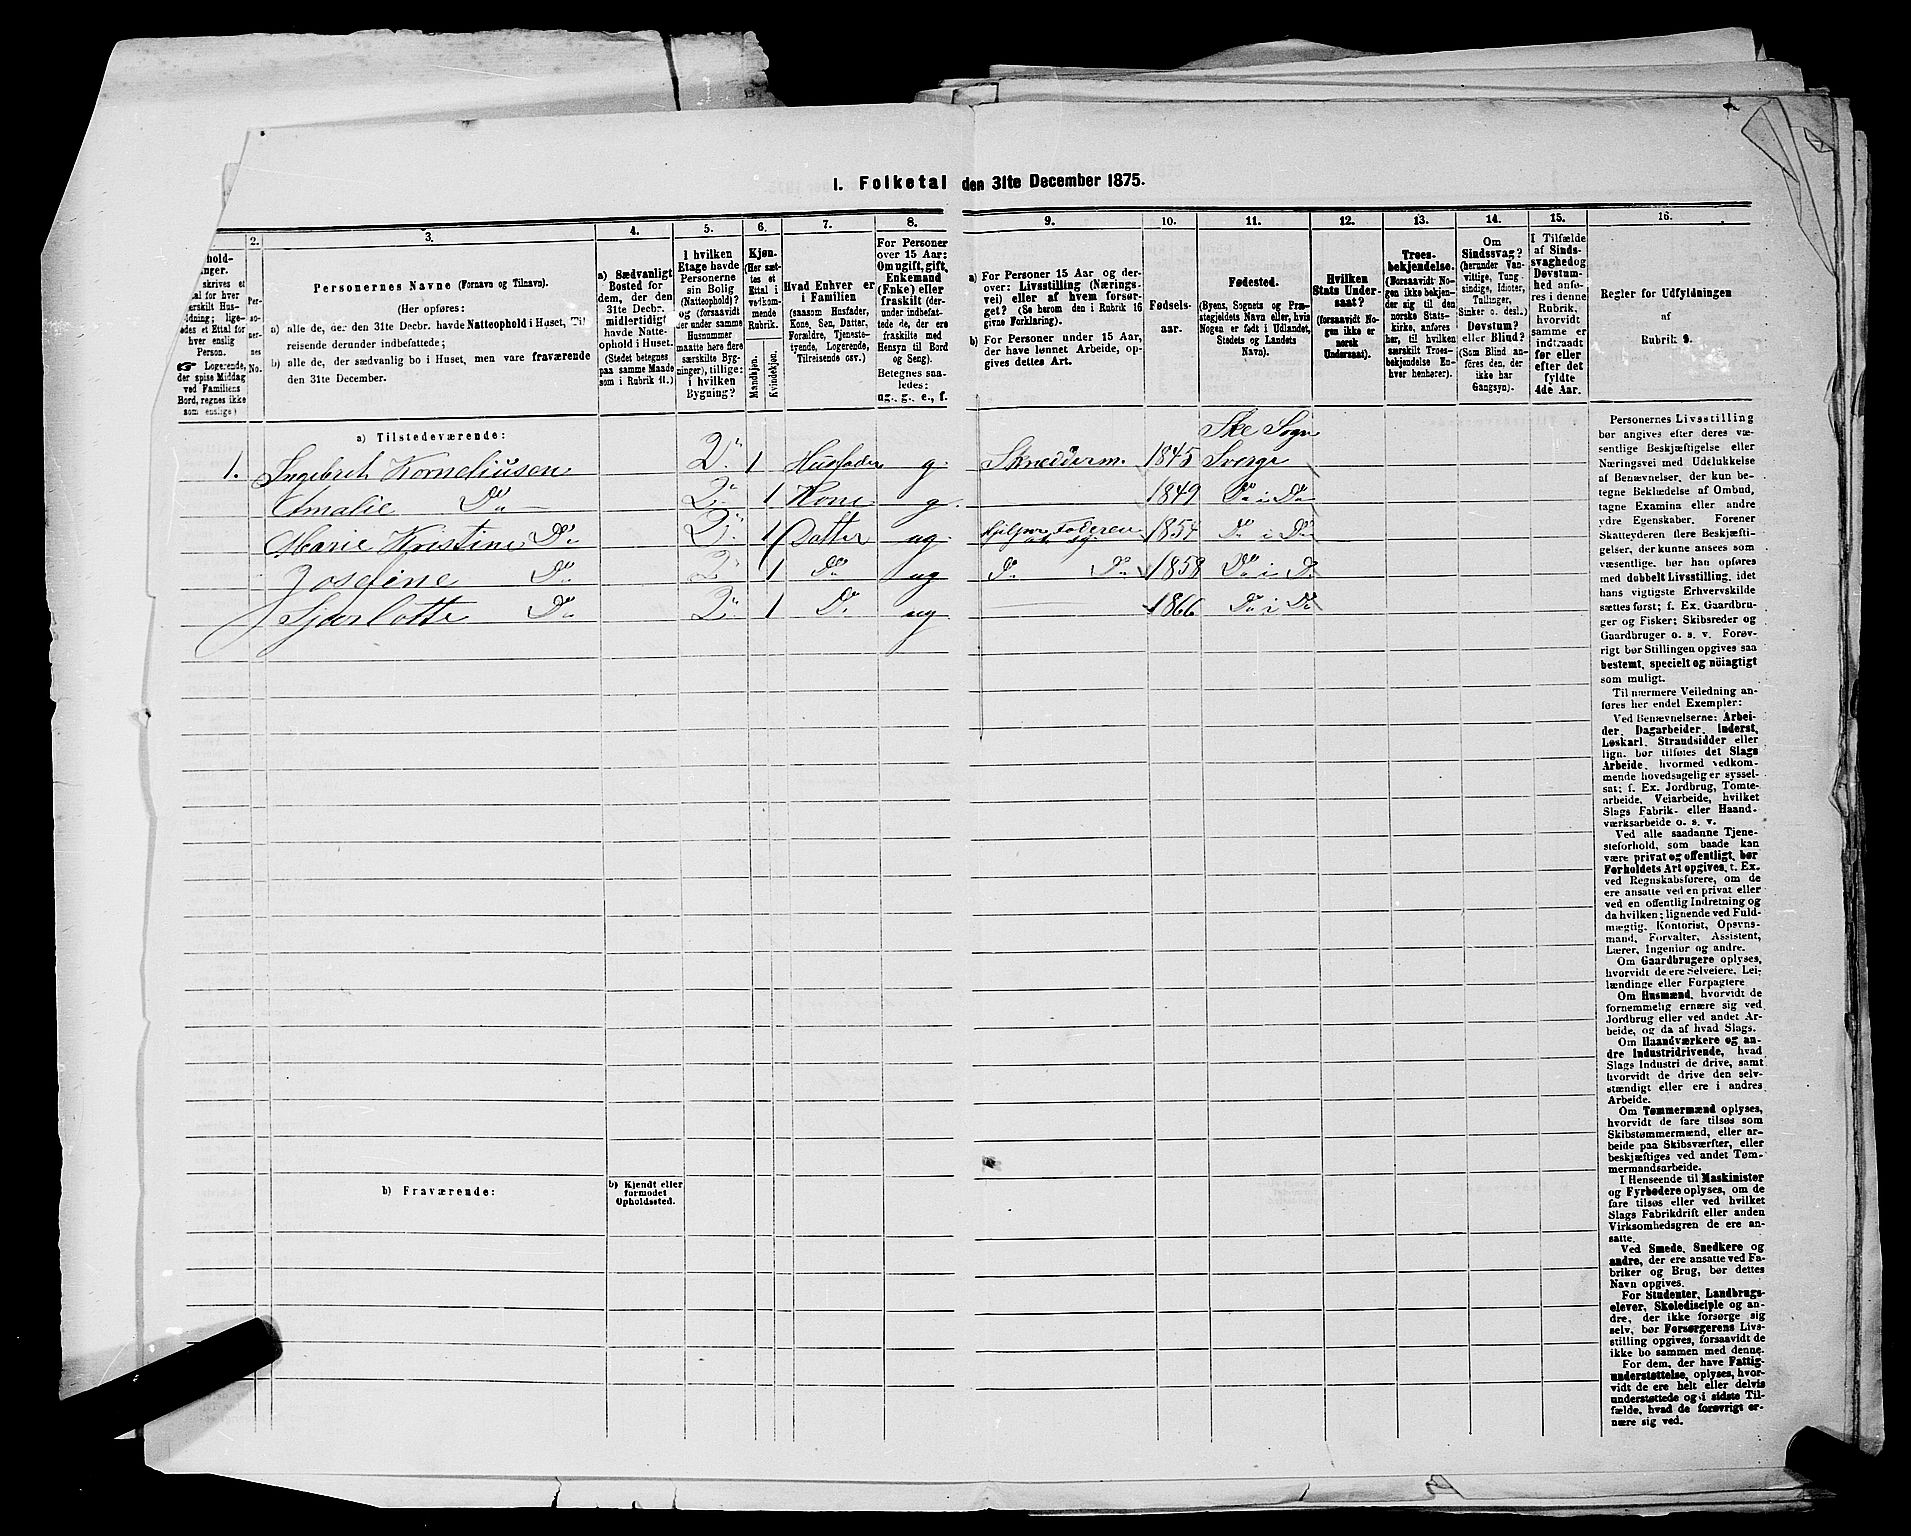 I. Folketal den 31te December 1875.
2. 3. 4. 5. 6. 7. 8. 9. 10. 11. 12. 13. 14. 15. 16.
hold-
nger.
skrives et
tal for hver
erskilt Hus-
ldning; lige-
edes et Ettal for
hver enslig
Person.
Logerende,
der spise Middag
ved Familiens
Bord, regnes ikke
som enslige)
Per-
so-
ner-
nes
No.
Personernes Navne (Fornavn og Tilnavn).
(Her opføres:
a) alle de, der den 31te Decbr. havde Natteophold i Huset, Til-
reisende derunder indbefattede;
b) alle de, der sædvanlig bo i Huset, men vare fraværende
den 31te December.
a) Sædvanligt
Bosted for
dem, der den
31te Decbr.
midlertidigt
havde Natte-
ophold i Huset.
(Stedet betegnes
paa samme Maade
som i Rubrik 11.)
I hvilken
Etage havde
Personerne
sin Bolig
(Natteophold)?
og (forsaavidt
der under samme
Husnummer
maatte høre flere
særskilte Byg-
ninger), tillige:
i hvilken
Bygning?
Kjøn.
(Her sæt-
tes et
Ettal i
vedkom-
mende
Rubrik.
Mandkjøn.
Kvindekjøn.
Hvad Enhver er
i Familien
(saasom Husfader,
Kone, Søn, Datter,
Forældre, Tjeneste-
tyende, Logerende,
Tilreisende osv.)
For Personer
over 15 Aar:
Om ugift, gift,
Enkemand
(Enke) eller
fraskilt (der-
under indbefat-
tede de, der ere
fraskilte med
Hensyn til Bord
og Seng).
Betegnes saa-
ledes:
ug., g., e., f.
a) For Personer 15 Aar og der-
over: Livsstilling (Næringsvei) eller af hvem forsør-
get? (Se herom den i Rubrik 16
givne Forklaring).
b) For Personer under 15 Aar,
der have lønnet Arbeide, op-
gives dettes Art.
Fødsels-
aar.
Fødested.
(Byens, Sognets og Præ-
stegjeldets Navn eller, hvis
Nogen er født i Udlandet,
Stedets og Landets
Navn).
Hvilken
Stats Under-
saat?
(forsaavidt No-
gen ikke er
norsk
Undersaat).
Troes-
bekjendelse.
(Forsaavidt No-
gen ikke bekjen-
der sig til den
norske Stats-
kirke, anføres
her, til hvilken
særskilt Troes-
bekjendelse En-
hver henhører).
Om
Sindssvag?
(herunder Van-
vittige, Tung-
sindige, Idioter,
Tullinger,
Sinker o. desl.)
Døvstum?
eller Blind?
(Som Blind an-
føres den, der
ikke har
Gangsyn).
I Tilfælde
af Sinds-
svaghed og
Døvstum-
hed anfø-
res i denne
Rubrik,
hvorvidt
samme er
indtraadt
før eller
efter det
fyldte
4de Aar.
Regler for Udfyldningen
af
Rubrik 9.
a) Tilstedeværende:
Ske Sogn
1. Ingebret Korneliusen 2. 1 Husfader g. Skreddderm. 1845 Sverge
Amalie Do 2 1 Kone g. 1849 Do i Do
Marie Kristine Do 2 1 Datter ug. Faderen 1854 Do i Do
Josefine Do 2 1 Do ug Do Do 1858 Do i Do
Sjarlotte Do 2 1 Do ug 1866 Do i Do
b) Fraværende:
b) Kjendt eller
formodet
Opholdssted.
Personernes Livsstilling
bør angives efter deres væ-
sentlige Beskjæftigelse eller
Næringsvei med Udelukkelse
af Benævnelser, der kun be-
tegne Beklædelse af Ombud,
tagne Examina eller andre
ydre Egenskaber. Forener
Skatteyderen flere Beskjæfti-
gelser, der kunne ansees som
væsentlige, bør han opføres
med dobbelt Livsstilling, idet
hans vigtigste Erhvervskilde
sættes først; f. Ex. Gaardbru-
ger og Fisker; Skibsreder og
Gaardbruger o. s. v. Forøv-
rigt bør Stillingen opgives saa
bestemt, specielt og nöiagtigt
som muligt.
Til nærmere Veiledning an-
føres her endel Exempler:
Ved Benævnelserne: Arbei-
der, Dagarbeider, Inderst,
Løskarl, Strandsidder eller
lign. bør tilføies det Slags
Arbeide, hvormed vedkom-
mende hovedsagelig er syssel-
sat; f. Ex. Jordbrug, Tomte-
arbeide, Veiarbeide, hvilket
Slags Fabrik- eller Haand-
værksarbeide o. s. v.
Ved alle saadanne Tjene-
steforhold, som baade kan
være privat og offentligt, bør
Forholdets Art opgives, t. Ex.
ved Regnskabsførere, om de
ere ansatte ved en privat eller
ved en offentlig Indretning og
da hvilken; lignende ved Fuld-
mægtig, Kontorist, Opsyns-
mand, Forvalter, Assistent,
Lærer, Ingeniør og andre.
Om Gaardbrugere oplyses,
hvorvidt de ere Selveiere, Lei-
lændinge eller Forpagtere.
Om Husmænd, hvorvidt de
fornemmelig ernære sig ved
Jordbrug eller ved andet Ar-
beide, og da af hvad Slags.
Om Haandværkere og an-
dre Industridrivende, hvad
Slags Industri de drive, samt
hvorvidt de drive den selv-
stændigt eller ere i andres
Arbeide.
Om Tømmermænd oplyses,
hvorvidt de fare tilsøs som
Skibstømmermænd, eller ar-
beide paa Skibsværfter, eller
beskjæftiges ved andet Tøm-
mermandsarbeide.
I Henseende til Maskinister
og Fyrbødere oplyses, om de
fare tilsøs eller ved hvilket
Slags Fabrikdrift eller anden
Virksomhedsgren de ere an-
satte.
Ved Smede, Snedkere og
andre, der ere ansatte ved Fa-
briker og Brug, bør dettes
Navn opgives.
For Studenter, Landbrugs-
elever, Skoledisciple og an-
dre, der ikke forsørge sig
selv, bør Forsørgerens Livs-
stilling opgives, forsaavidt de
ikke bo sammen med denne.
For dem, der have Fattig-
understøttelse, oplyses, hvor-
vidt de ere helt eller delvis
understøttede og i sidste Til-
fælde, hvad de forøvrigt er-
nære sig ved.